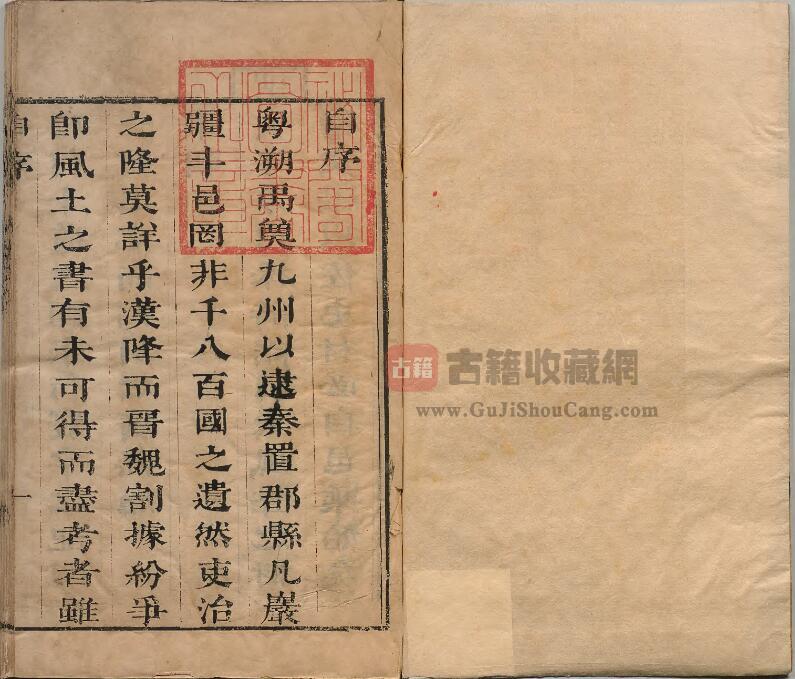 自序
粵溯禹奠九州以逮秦置郡縣凡巖
疆斗邑罔非千八百國之遺然吏治
之隆莫詳乎漢降而晉魏割據紛爭
卽風土之書有未可得而盡考者雖
自序 一
古籍 古籍收藏網
www.GuJiShouCang.com